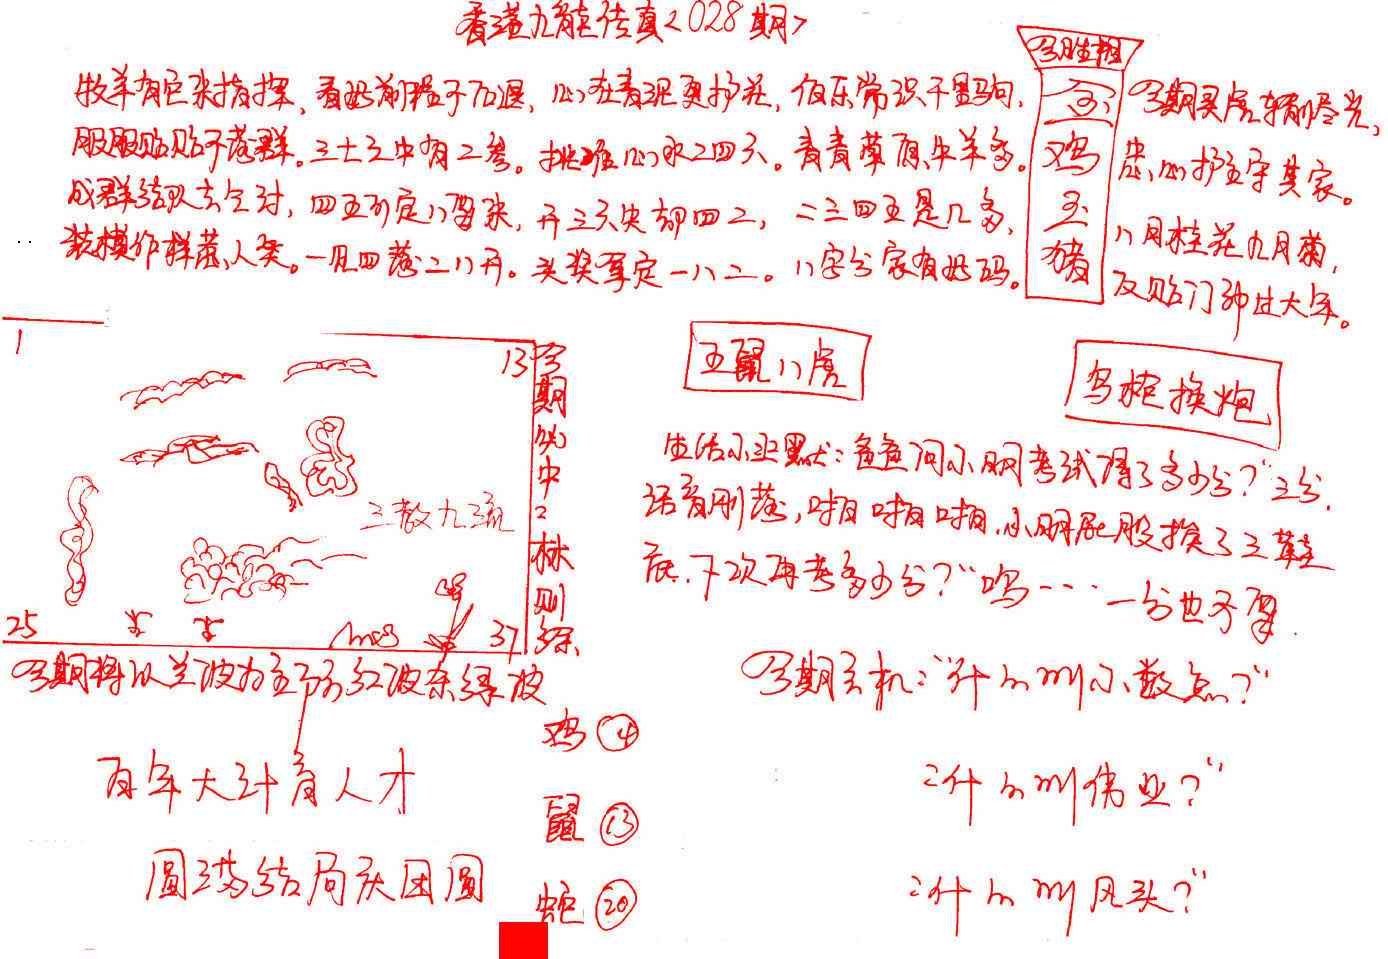 香港九龍传真<028期>
今期生相
牧羊有巨来指挥，看此前程不后退，心在青泥更护花，伯乐常识千里驹，
服服贴贴不落群。三七之中有二叁。挑难心水二四六。青青草原牛羊多。
成群结队去
四五不定八
开三六尖却四二，二三四五是几多，
装模作样惹人笑。一见四落二八开。头奖拿定一八二。八字分家有此码。
玄
鸡
玉
猪
今期买虎
忠心护主守其家。
八月桂花九月菊，
反贴门神过大年。
1
13
25
37
三教九流
今期必中：林则徐
五鼠八虎
鸟枪换炮
生活小幽默：爸爸问小明考试得了多少分？"三分.
话音刚落，啪啪啪，小明屁股挨了三鞋
底.下次再考多少分？"呜… 一分也不拿
今期将以兰波为主防红波杂绿波
百年大计育人才
圆满结局庆团圆
鸡 ④
鼠 ⑬
蛇 ⑳
今期玄机："什么叫小数点？"
："什么叫伟业？"
："什么叫风头？"